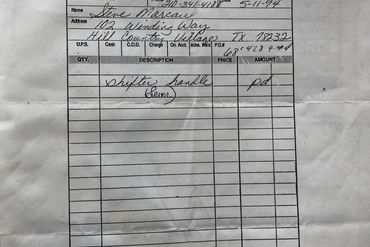 210-341-4188 5-11-94
Name Steve Marcau
Address 102 Winding Way
Hill Country Village TX 78232
U.P.S. Cash C.O.D. Charge On Acct. Mdse. Retd. P.O.#
68' 428
QTY. DESCRIPTION PRICE AMOUNT
shifter handle pd
(Lever)